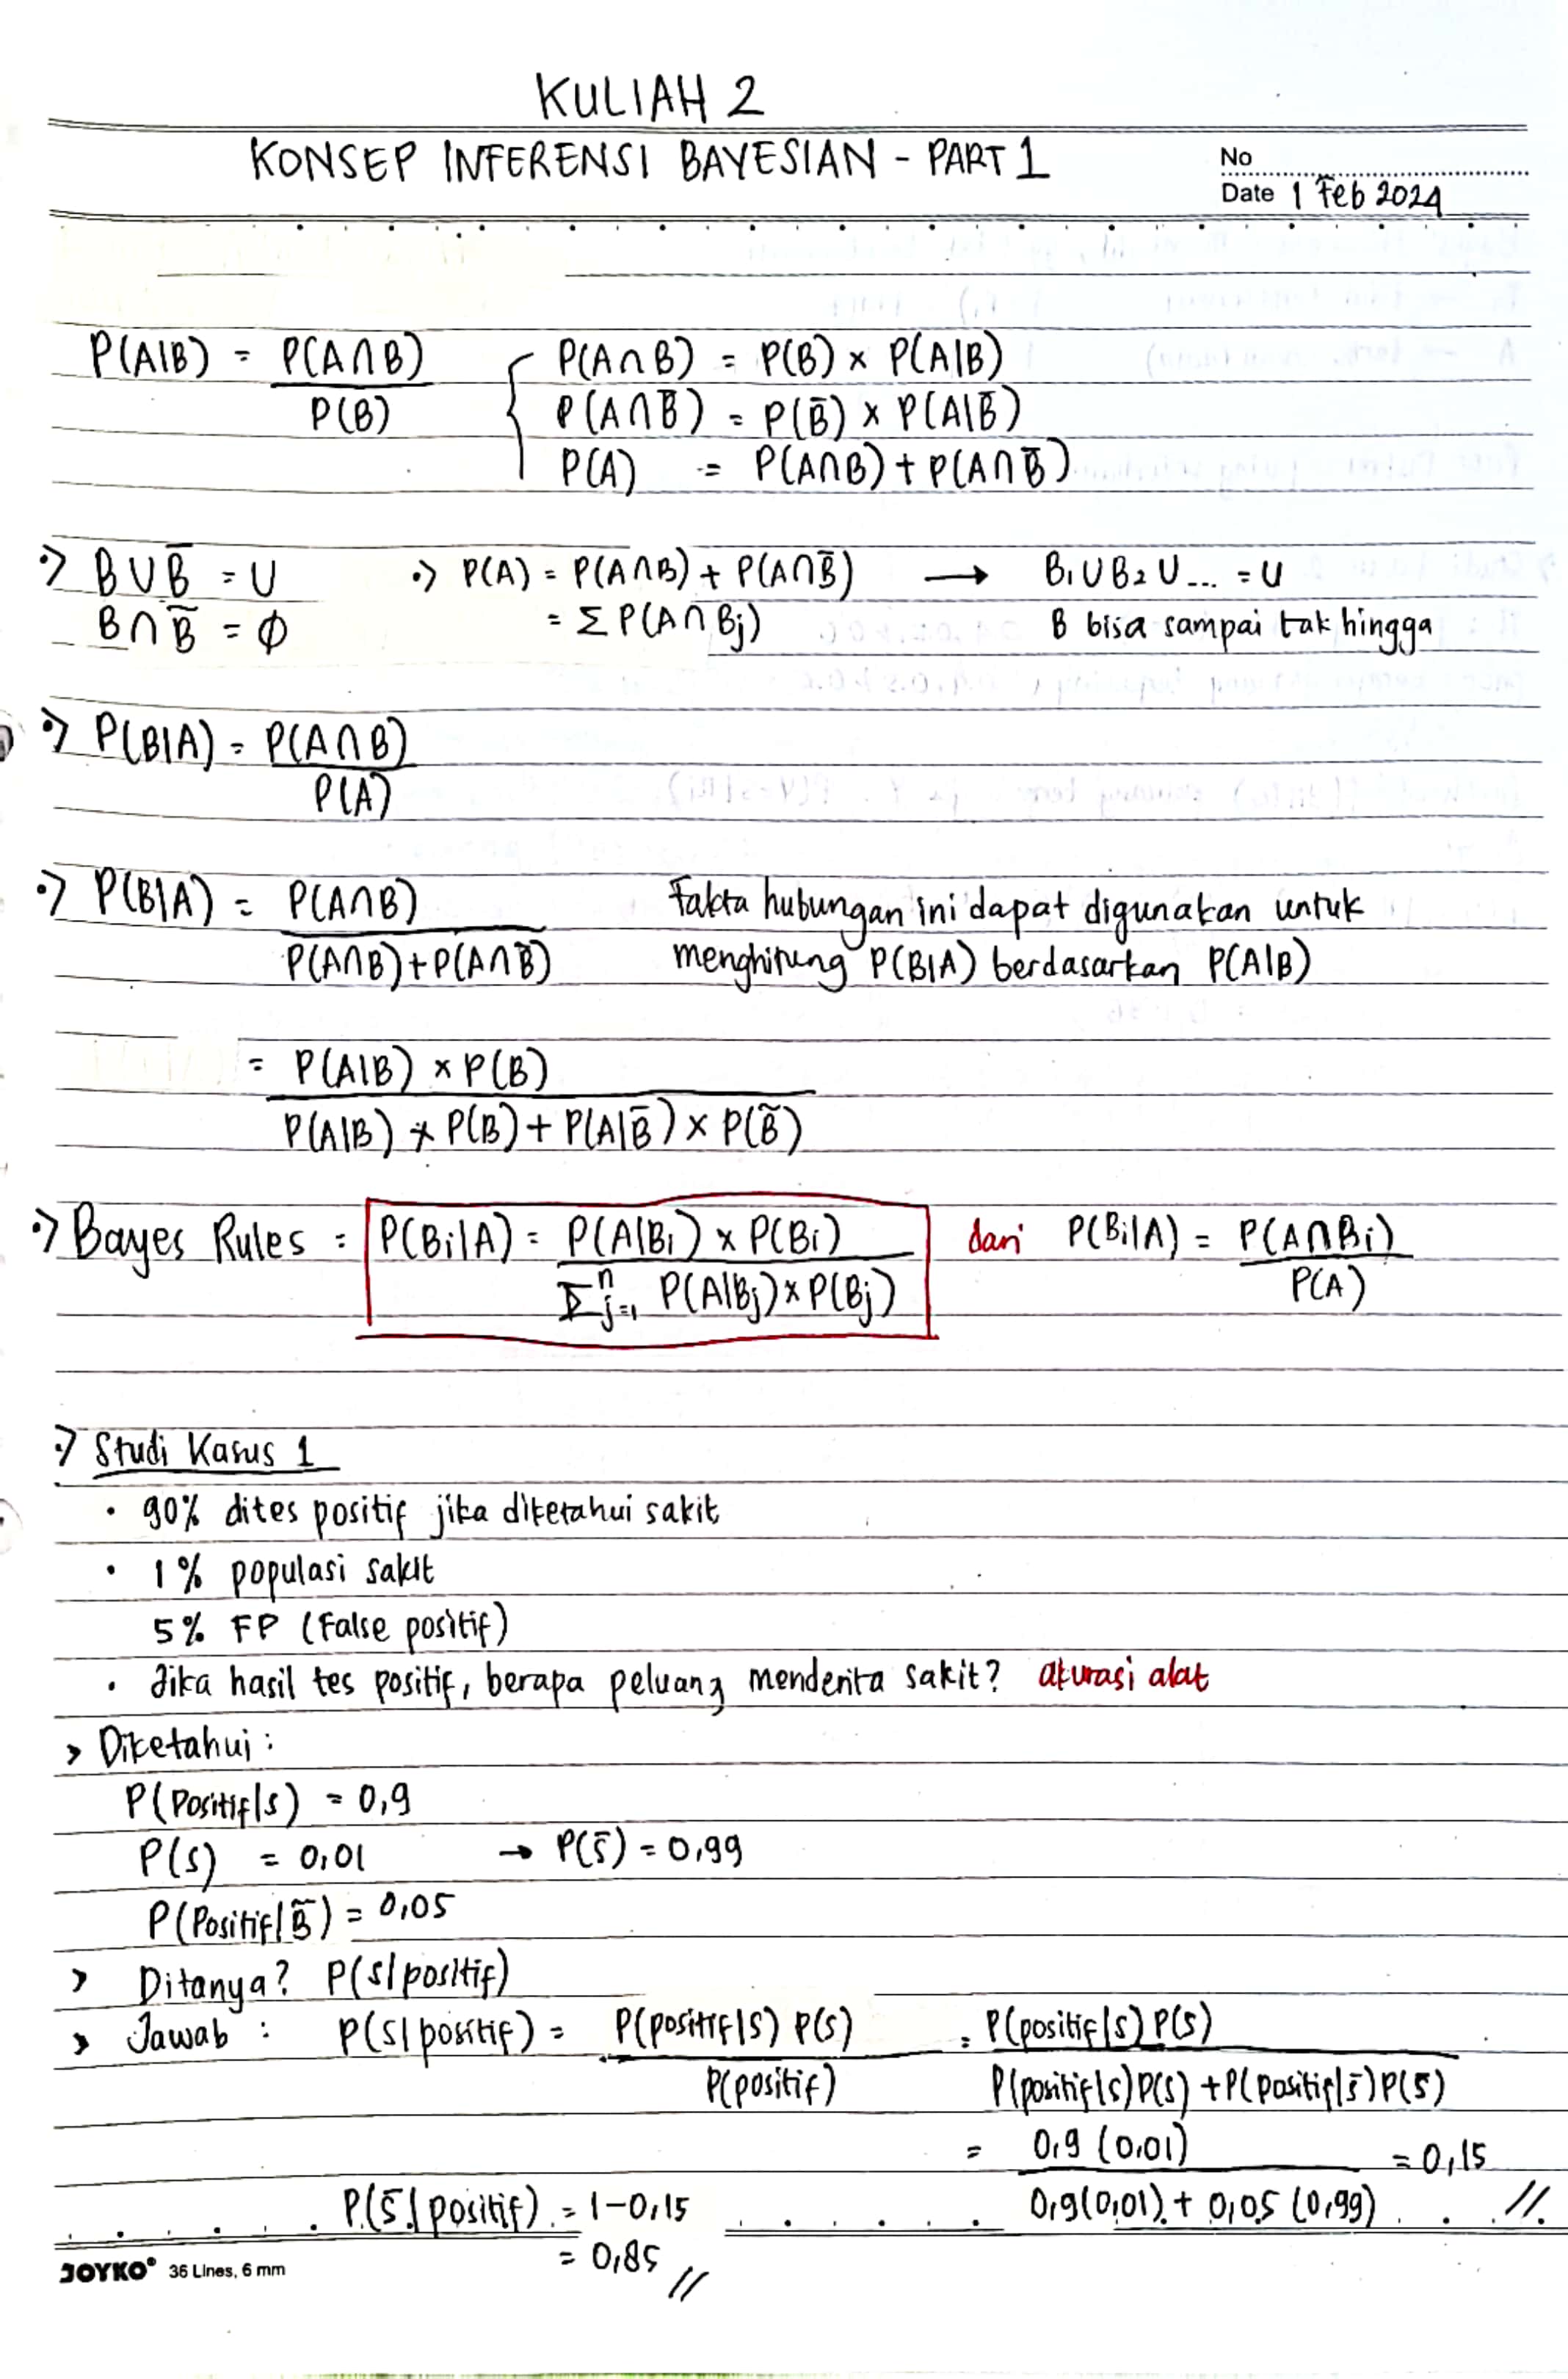 KULIAH 2
KONSEP INFERENSI BAYESIAN - PART 1
No
Date 1 Feb 2024
P(A|B) = P(A∩B) / P(B)
P(A∩B) = P(B) × P(A|B)
P(A∩B̄) = P(B̄) × P(A|B̄)
P(A) = P(A∩B) + P(A∩B̄)
B ∪ B̄ = U
B ∩ B̄ = ∅
P(A) = P(A∩B) + P(A∩B̄) → B₁ ∪ B₂ ∪ ... = U
= Σ P(A∩Bj) B bisa sampai tak hingga
P(B|A) = P(A∩B) / P(A)
P(B|A) = P(A∩B) / P(A∩B)+P(A∩B̄)
Fakta hubungan ini dapat digunakan untuk
menghitung P(B|A) berdasarkan P(A|B)
= P(A|B) × P(B) / P(A|B) × P(B) + P(A|B̄) × P(B̄)
Bayes Rules = P(Bi|A) = P(A|Bi) × P(Bi) / Σⁿj=1 P(A|Bj)×P(Bj) dari P(Bi|A) = P(A∩Bi) / P(A)
Studi Kasus 1
• 90% dites positif jika diketahui sakit
• 1% populasi sakit
5% FP (False positif)
• Jika hasil tes positif, berapa peluang menderita sakit? akurasi alat
> Diketahui :
P(Positif|S) = 0,9
P(S) = 0,01 → P(S̄) = 0,99
P(Positif|B̄) = 0,05
> Ditanya? P(S|positif)
> Jawab : P(S|positif) = P(positif|S) P(S) / P(positif) = P(positif|S) P(S) / P(positif|S)P(S) + P(positif|S̄)P(S̄)
= 0,9 (0,01) / 0,9(0,01) + 0,05 (0,99) = 0,15 //
P(S̄|positif) = 1-0,15
= 0,85 //
JOYKO® 36 Lines, 6 mm